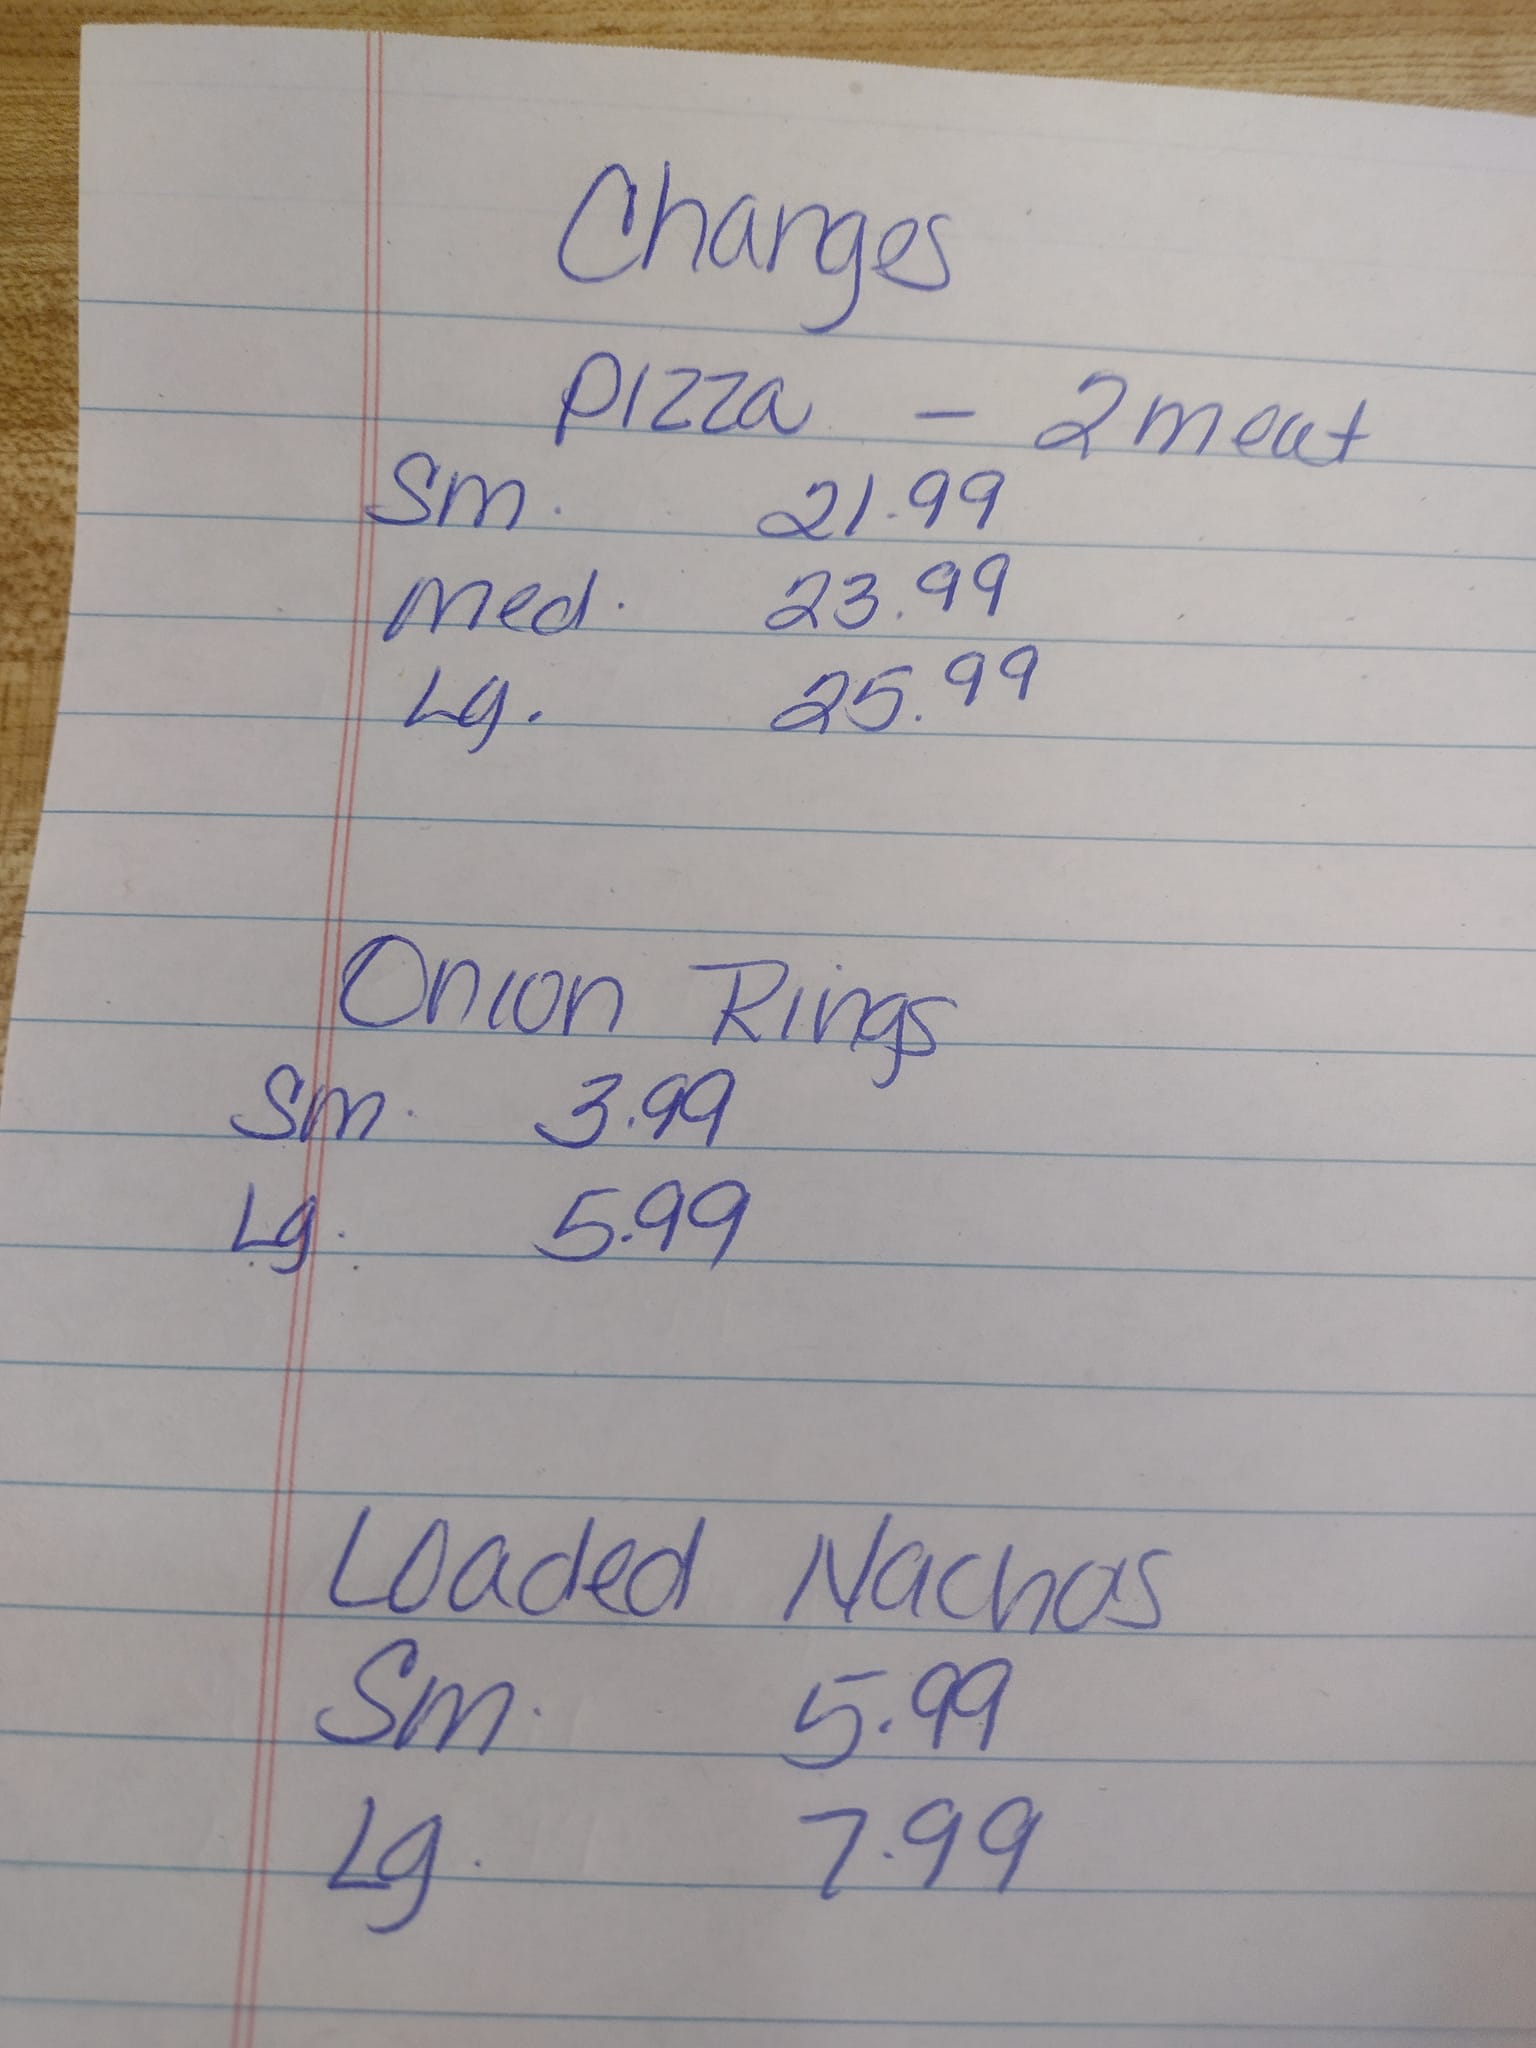 Changes
Pizza - 2 meat
Sm. 21.99
Med. 23.99
Lg. 25.99
Onion Rings
Sm. 3.99
Lg. 5.99
Loaded Nachos
Sm. 5.99
Lg. 7.99